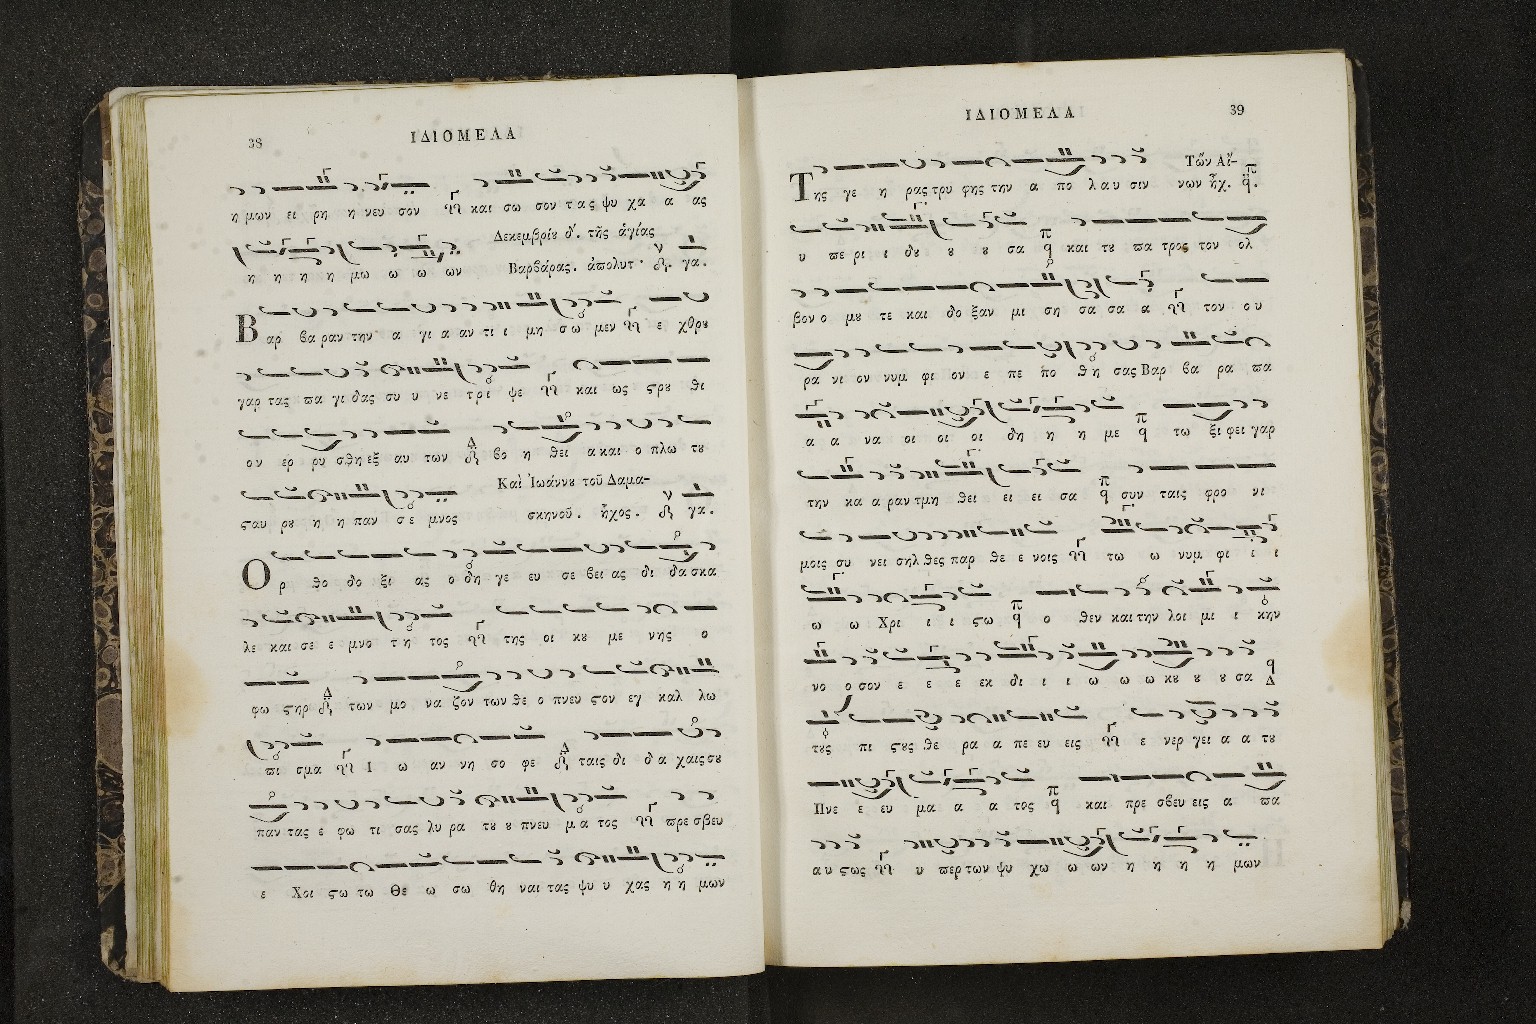 38
ΙΔΙΟΜΕΛΑ
η μων ει ρη η νευ σον και σω σον τας ψυ χα α ας
Δεκεμβρίȣ δ´. τῆς ἁγίας
η η η η μω ω ω ων Βαρβάρας. ἀπολυτ. γα.
Βαρ βα ραν την α γι α αν τι ι μη σω μεν ε χθρȣ
γαρ τας πα γι δας συ υ νε τρι ψε και ως ϛρȣ θι
ον ερ ρυ σθη εξ αυ των βο η θει α και ο πλω τȣ
Καὶ Ἰωάννȣ τοῦ Δαμα-
ϛαυ ρȣ η η παν σε μνος σκηνοῦ. ἦχος. γα.
Ορ θο δο ξι ας ο δη γε ευ σε βει ας δι δα σκα
λε και σε ε μνο τη τος της οι κȣ με νης ο
φω ϛηρ των μο να ζον των θε ο πνευ ϛον εγ καλ λω
πι σμα Ι ω αν νη σο φε ταις δι δα χαις σȣ
παν τας ε φω τι σας λυ ρα τȣ ȣ πνευ μα τος πρε σβευ
ε Χρι ϛω τω Θε ω σω θη ναι τας ψυ υ χας η η μων
ΙΔΙΟΜΕΛΑ
39
Τῶν Αἴ-
Της γε η ρας τρυ φης την α πο λαυ σιν νων ἦχ. q.
υ πε ρι ι δȣ ȣ ȣ σα και τȣ πα τρος τον ολ
βον ο μȣ τε και δο ξαν μι ση σα σα α τον ου
ρα νι ον νυμ φι ον ε πε πο θη σας Βαρ βα ρα πα
α α να οι οι οι δη η η με τω ξι φει γαρ
την κα α ραν τμη θει ει ει σα συν ταις φρο νι
μοις συ νει σηλ θες παρ θε ε νοις τω ω νυμ φι ι ι
ω ω Χρι ι ι ϛω ο θεν και την λοι μι ι κην
νο ο σον ε ε ε εκ δι ι ι ω ω ω κȣ ȣ ȣ σα
τȣς πι ϛȣς θε ρα α πε ευ εις ε νερ γει α α τȣ
Πνε ε ευ μα α α τος και πρε σβευ εις α πα
αυ ϛως υ περ των ψυ χω ω ων η η η η μων